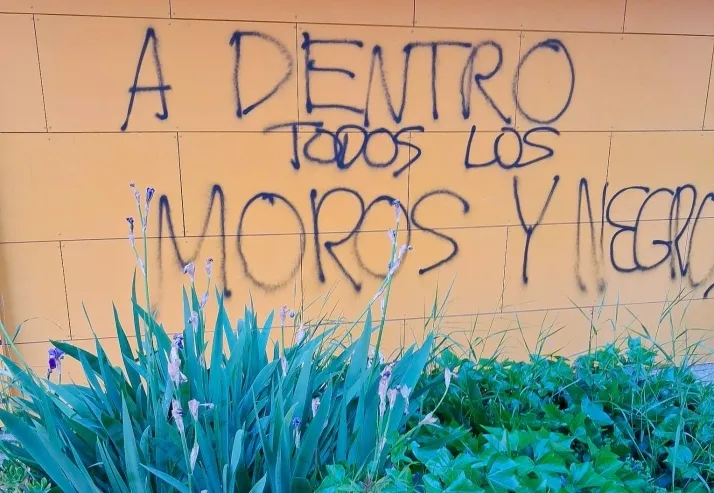 A DENTRO
TODOS LOS
MOROS Y NEGRO